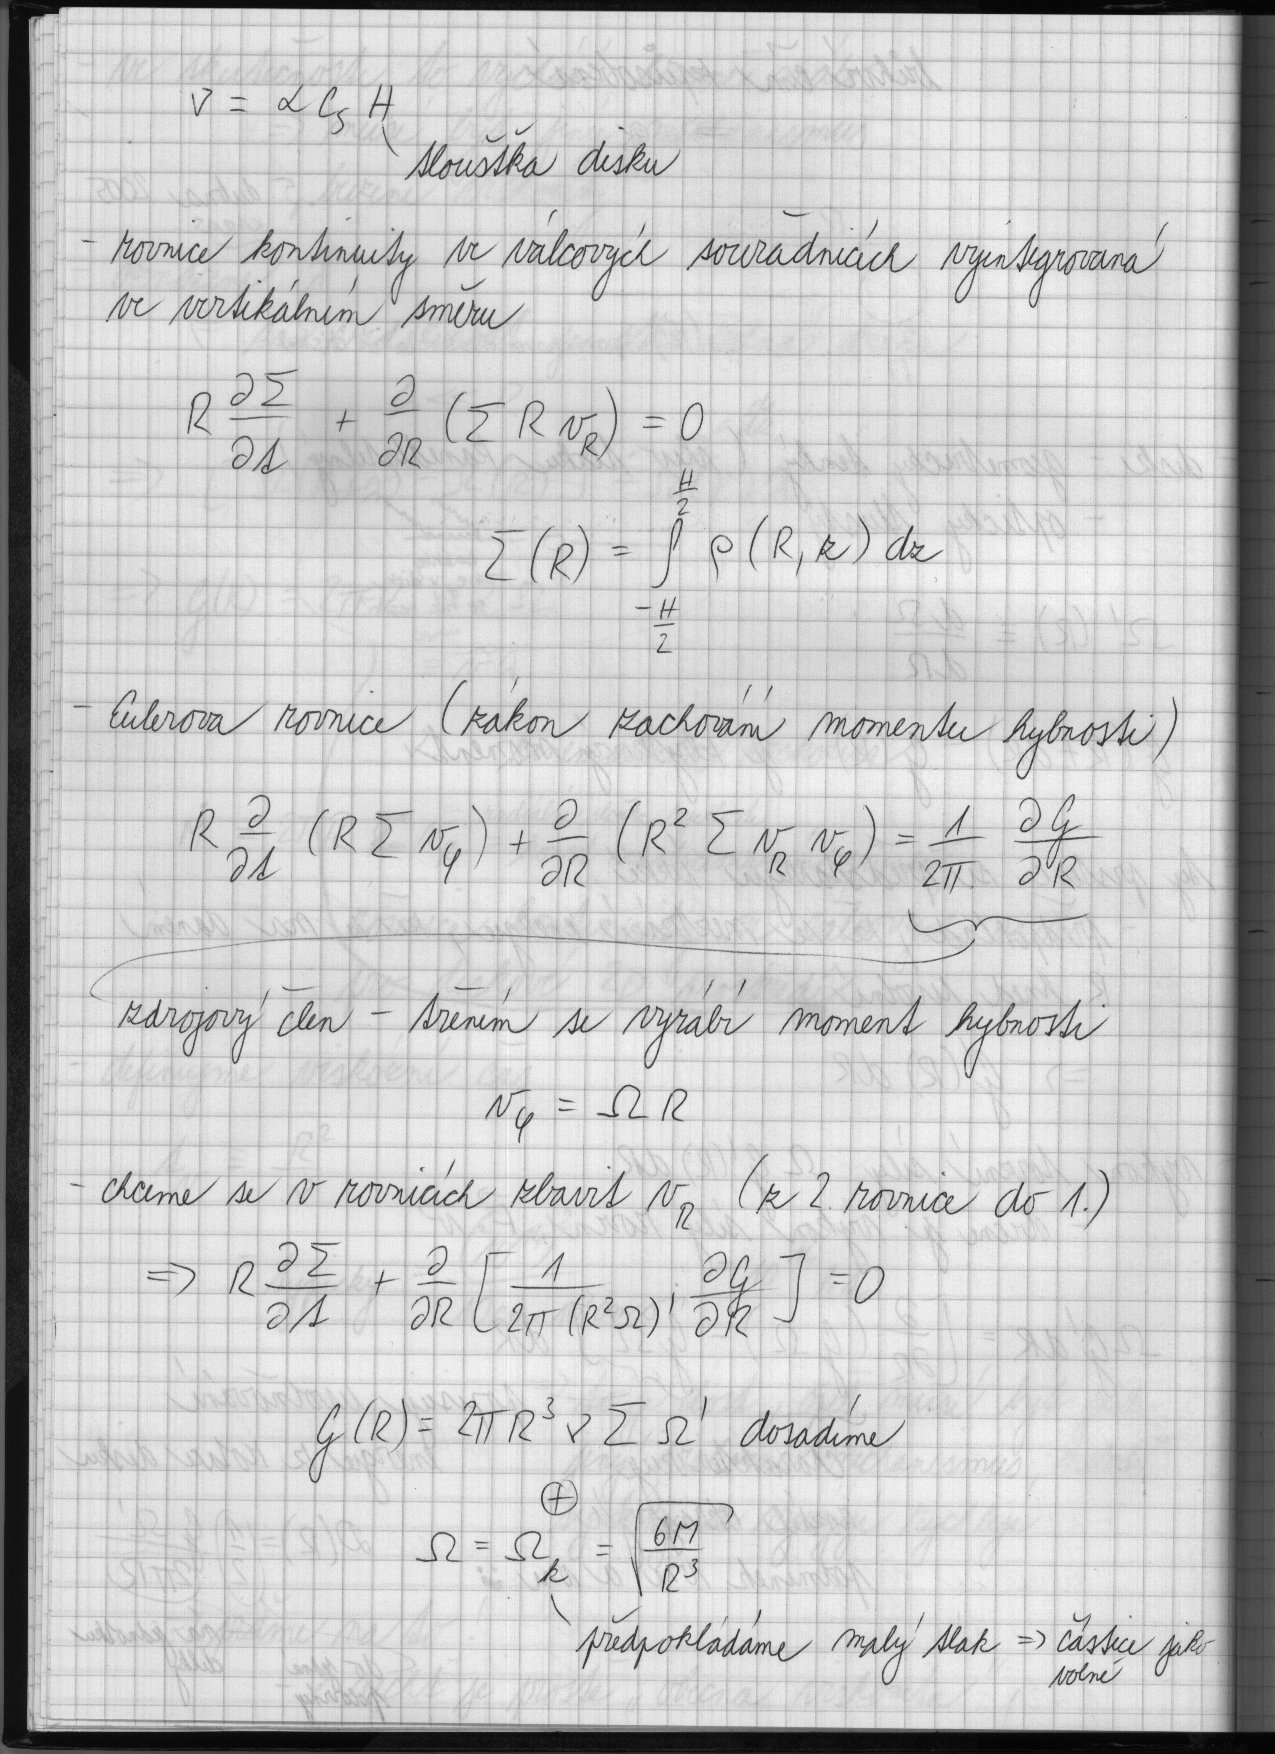 ν = α c_s H
tloušťka disku
- rovnice kontinuity ve válcových souřadnicích vyintegrovaná
ve vertikálním směru
R ∂Σ/∂t + ∂/∂R (Σ R v_R) = 0
Σ(R) = ∫_{-H/2}^{H/2} ρ(R, z) dz
- Eulerova rovnice (zákon zachování momentu hybnosti)
R ∂/∂t (R Σ v_φ) + ∂/∂R (R² Σ v_R v_φ) = 1/2π ∂G/∂R
zdrojový člen - třením se vyrábí moment hybnosti
v_φ = Ω R
- chceme se v rovnicích zbavit v_R (z 2. rovnice do 1.)
⇒ R ∂Σ/∂t + ∂/∂R [1/2π(R²Ω)' ∂G/∂R] = 0
G(R) = 2πR³ ν Σ Ω' dosadíme
⊕
Ω = Ω_k = √(GM/R³)
předpokládáme malý tlak ⇒ částice jako
volné